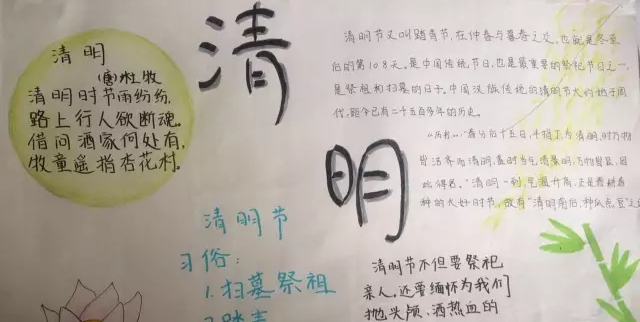 清明
(唐)杜牧
清明时节雨纷纷,
路上行人欲断魂。
借问酒家何处有,
牧童遥指杏花村。
清
明
清明节又叫踏青节,在仲春与暮春之交,也就是冬至
后的第108天。是中国传统节日,也是最重要的祭祀节日之一,
是祭祖和扫墓的日子。中国汉族传统的清明节大约始于周
代,距今已有二千五百多年的历史。
《历书》:"春分后十五日,斗指丁,为清明,时万物
皆洁齐而清明,盖时当气清景明,万物皆显,因
此得名。"清明一到,气温升高,正是春耕春
种的大好时节,故有"清明前后,种瓜点豆"之
清明节
习俗:
1.扫墓祭祖
2.踏青
清明节不但要祭祀
亲人,还要缅怀为我们
抛头颅、洒热血的